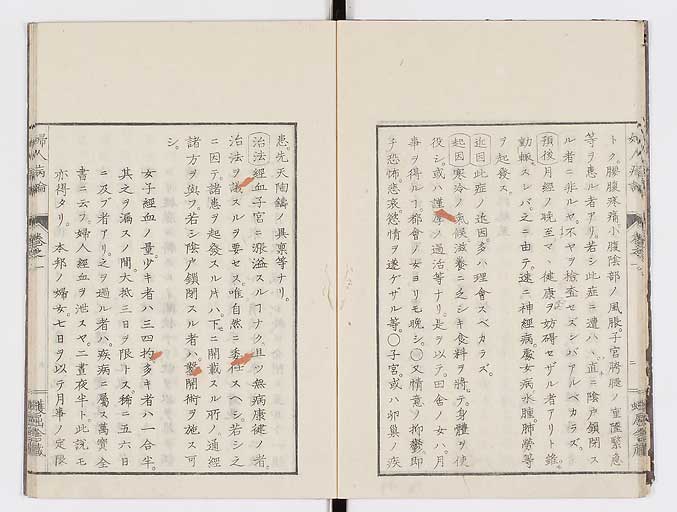 ト ク、腰腹疼痛、小腹陰部ノ風脹、子宮將腫ノ
等ヲ患ル者アリ。若シ此症ニ遭ハヾ、直ニ陰戸鎖閉ス
ル者ニ非ルヤ、不ヤヲ檢査セズンバアルベカラズ。
預後 月經ノ晩至マヽ健康ヲ妨碍セザル者アリト雖。
動輙スレバ、之ニ由テ、速ニ神經病、慶女病、水腫、肺勞等
ヲ起發ス。
近因 此症ノ近因多ハ理會スベカラズ。
起因 寒冷ノ氣候、滋養ニ乏シキ食料ヲ將テ、身體ヲ使
役シ。或ハ謹厚ノ過活等ナリ。是ヲ以テ、田舎ノ女ハ、月
事ヲ得ルヿ都會ノ女ヨリモ晩シ。○又情意ノ抑鬱、即
チ恐怖、悲哀、慾情ヲ遂ケザル等。○子宮、或ハ卵巣ノ疾
患先天陶鑄ノ異禀等ナリ。
治法 經血子宮ニ漲溢スルヿナク、且ツ無病康健ノ者。
治法ヲ議スルヲ要セス。唯自然ニ委任スヘシ。若シ之
ニ因テ、諸患ヲ起發スル片ハ、下ニ開載スル所ノ通經
諸方ヲ與フ。若シ陰戸鎖閉スル者ハ、鑿開術ヲ施ス可
シ。
女子經血ノ量。少キ者ハ三四 多キ者ハ一合半。
其之ヲ漏スノ間。大抵三日ヲ限トス。稀ニ五六日
ニ及ブ者アリ。之ヲ過ル者ハ、疾病ニ屬ス。萬寳全
書ニ云フ。婦人經血ヲ泄スヤ。二晝夜半ト。此説モ
亦得タリ。本邦ノ婦女七日ヲ以テ月事ノ定限
婦人病論
卷之一